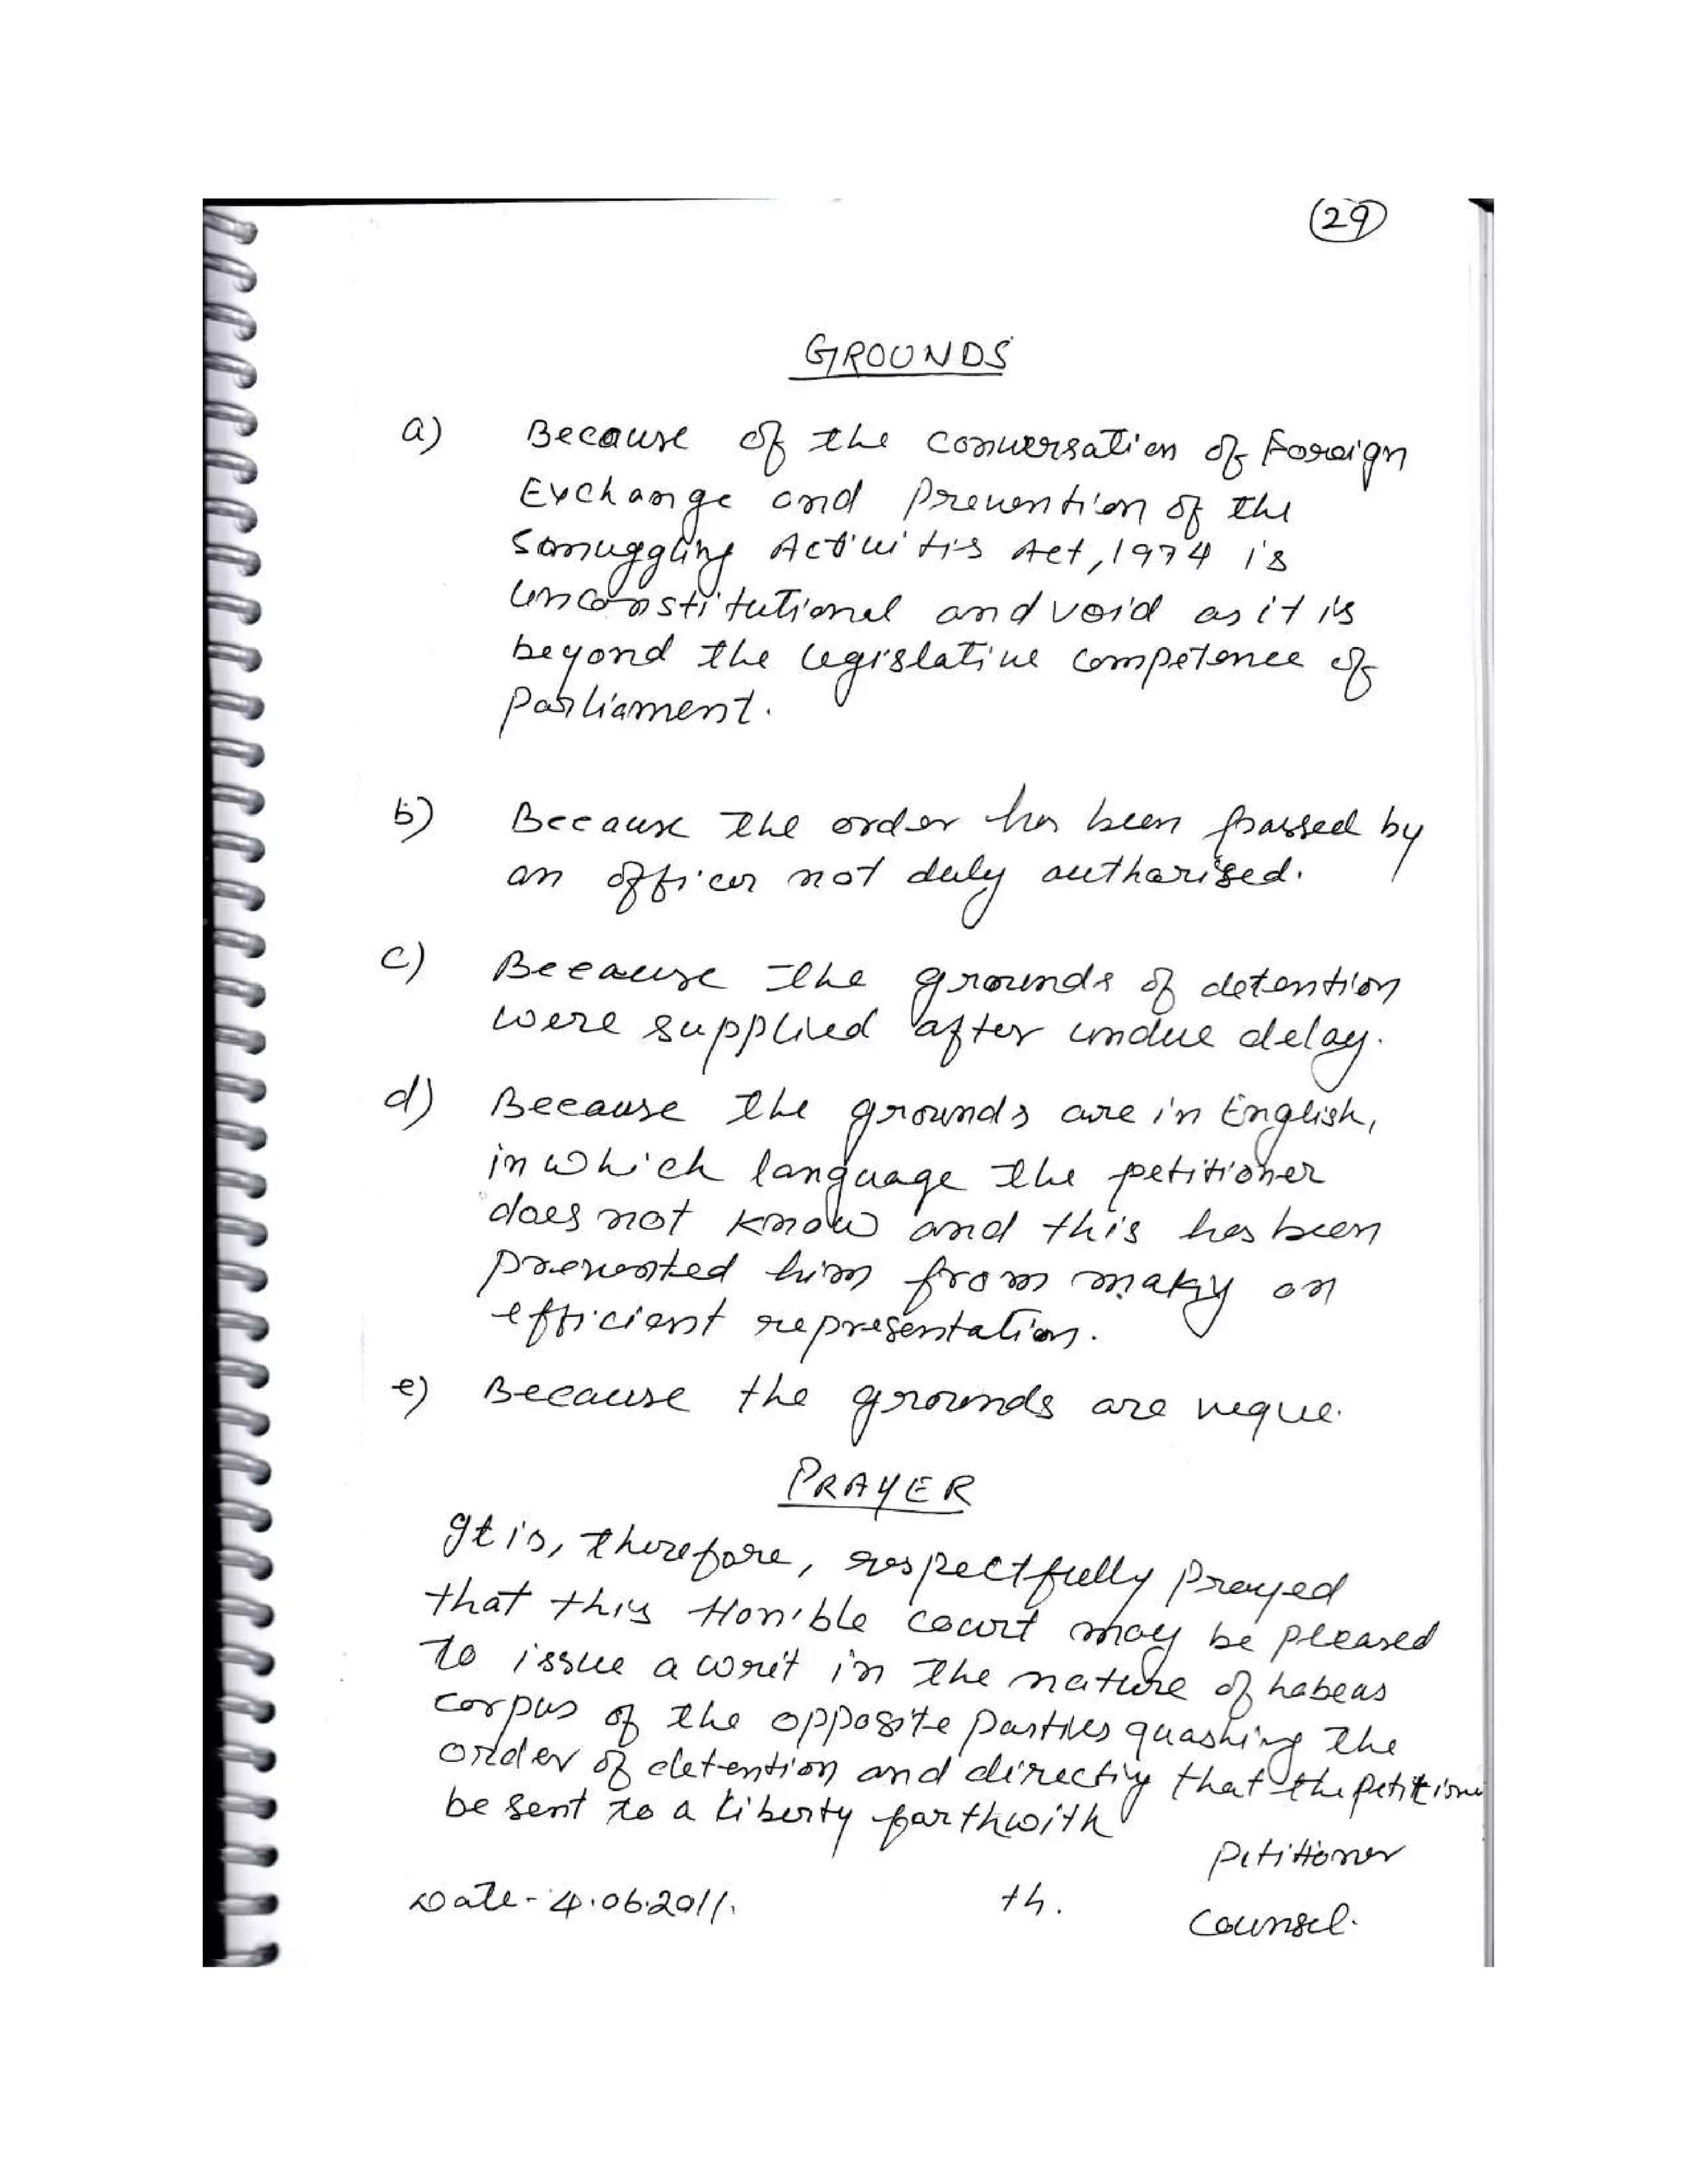 29
GROUNDS
a) Because of the conversation of Foreign
Exchange and Prevention of the
Samuggling Activitis Act, 1974 is
unconstitutional and void as it is
beyond the legislative competence of
Parliament.
b) Because the order has been passed by
an officer not duly autharised.
c) Because the grounds of detention
were supplied after undue delay.
d) Because the grounds are in English,
in which language the petitioner
does not know and this has been
prevented him from making an
efficient representation.
e) Because the grounds are vegue.
PRAYER
It is, therefore, respectfully prayed
that this Hon'ble court may be pleased
to issue a writ in the nature of habeas
corpus of the opposite parties quashing the
order of detention and directing that the petitione
be sent to a liberty farthwith
Petitioner
Date - 4.06.2011. th.
Counsel.